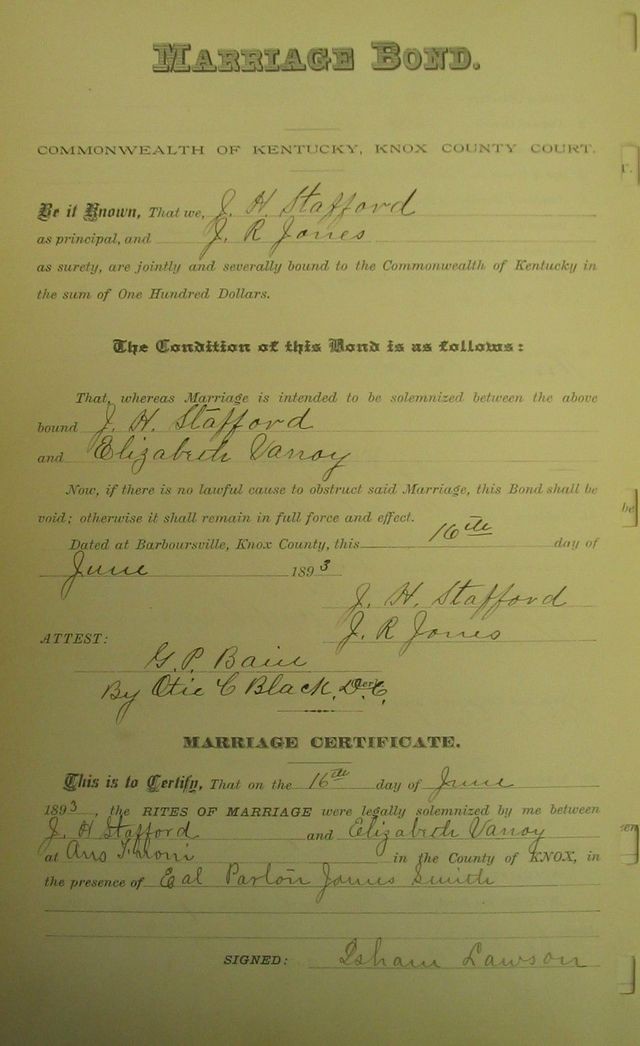 MARRIAGE BOND.
COMMONWEALTH OF KENTUCKY, KNOX COUNTY COURT.
Be it Known, That we, J. H Stafford
as principal, and J. R Jones
as surety, are jointly and severally bound to the Commonwealth of Kentucky in
the sum of One Hundred Dollars.
The Condition of this Bond is as follows:
That, whereas Marriage is intended to be solemnized between the above
bound J. H. Stafford
and Elizabeth Vanoy
Now, if there is no lawful cause to obstruct said Marriage, this Bond shall be
void; otherwise it shall remain in full force and effect.
Dated at Barboursville, Knox County, this 16th day of
June 1893
J. H. Stafford
J. R Jones
ATTEST:
G. P. Bain
By Otis C Black, D.C.
MARRIAGE CERTIFICATE.
This is to Certify, That on the 16th day of June
1893, the RITES OF MARRIAGE were legally solemnized by me between
J. H Stafford and Elizabeth Vanoy
at in the County of KNOX, in
the presence of Smith
SIGNED: Isham Lawson